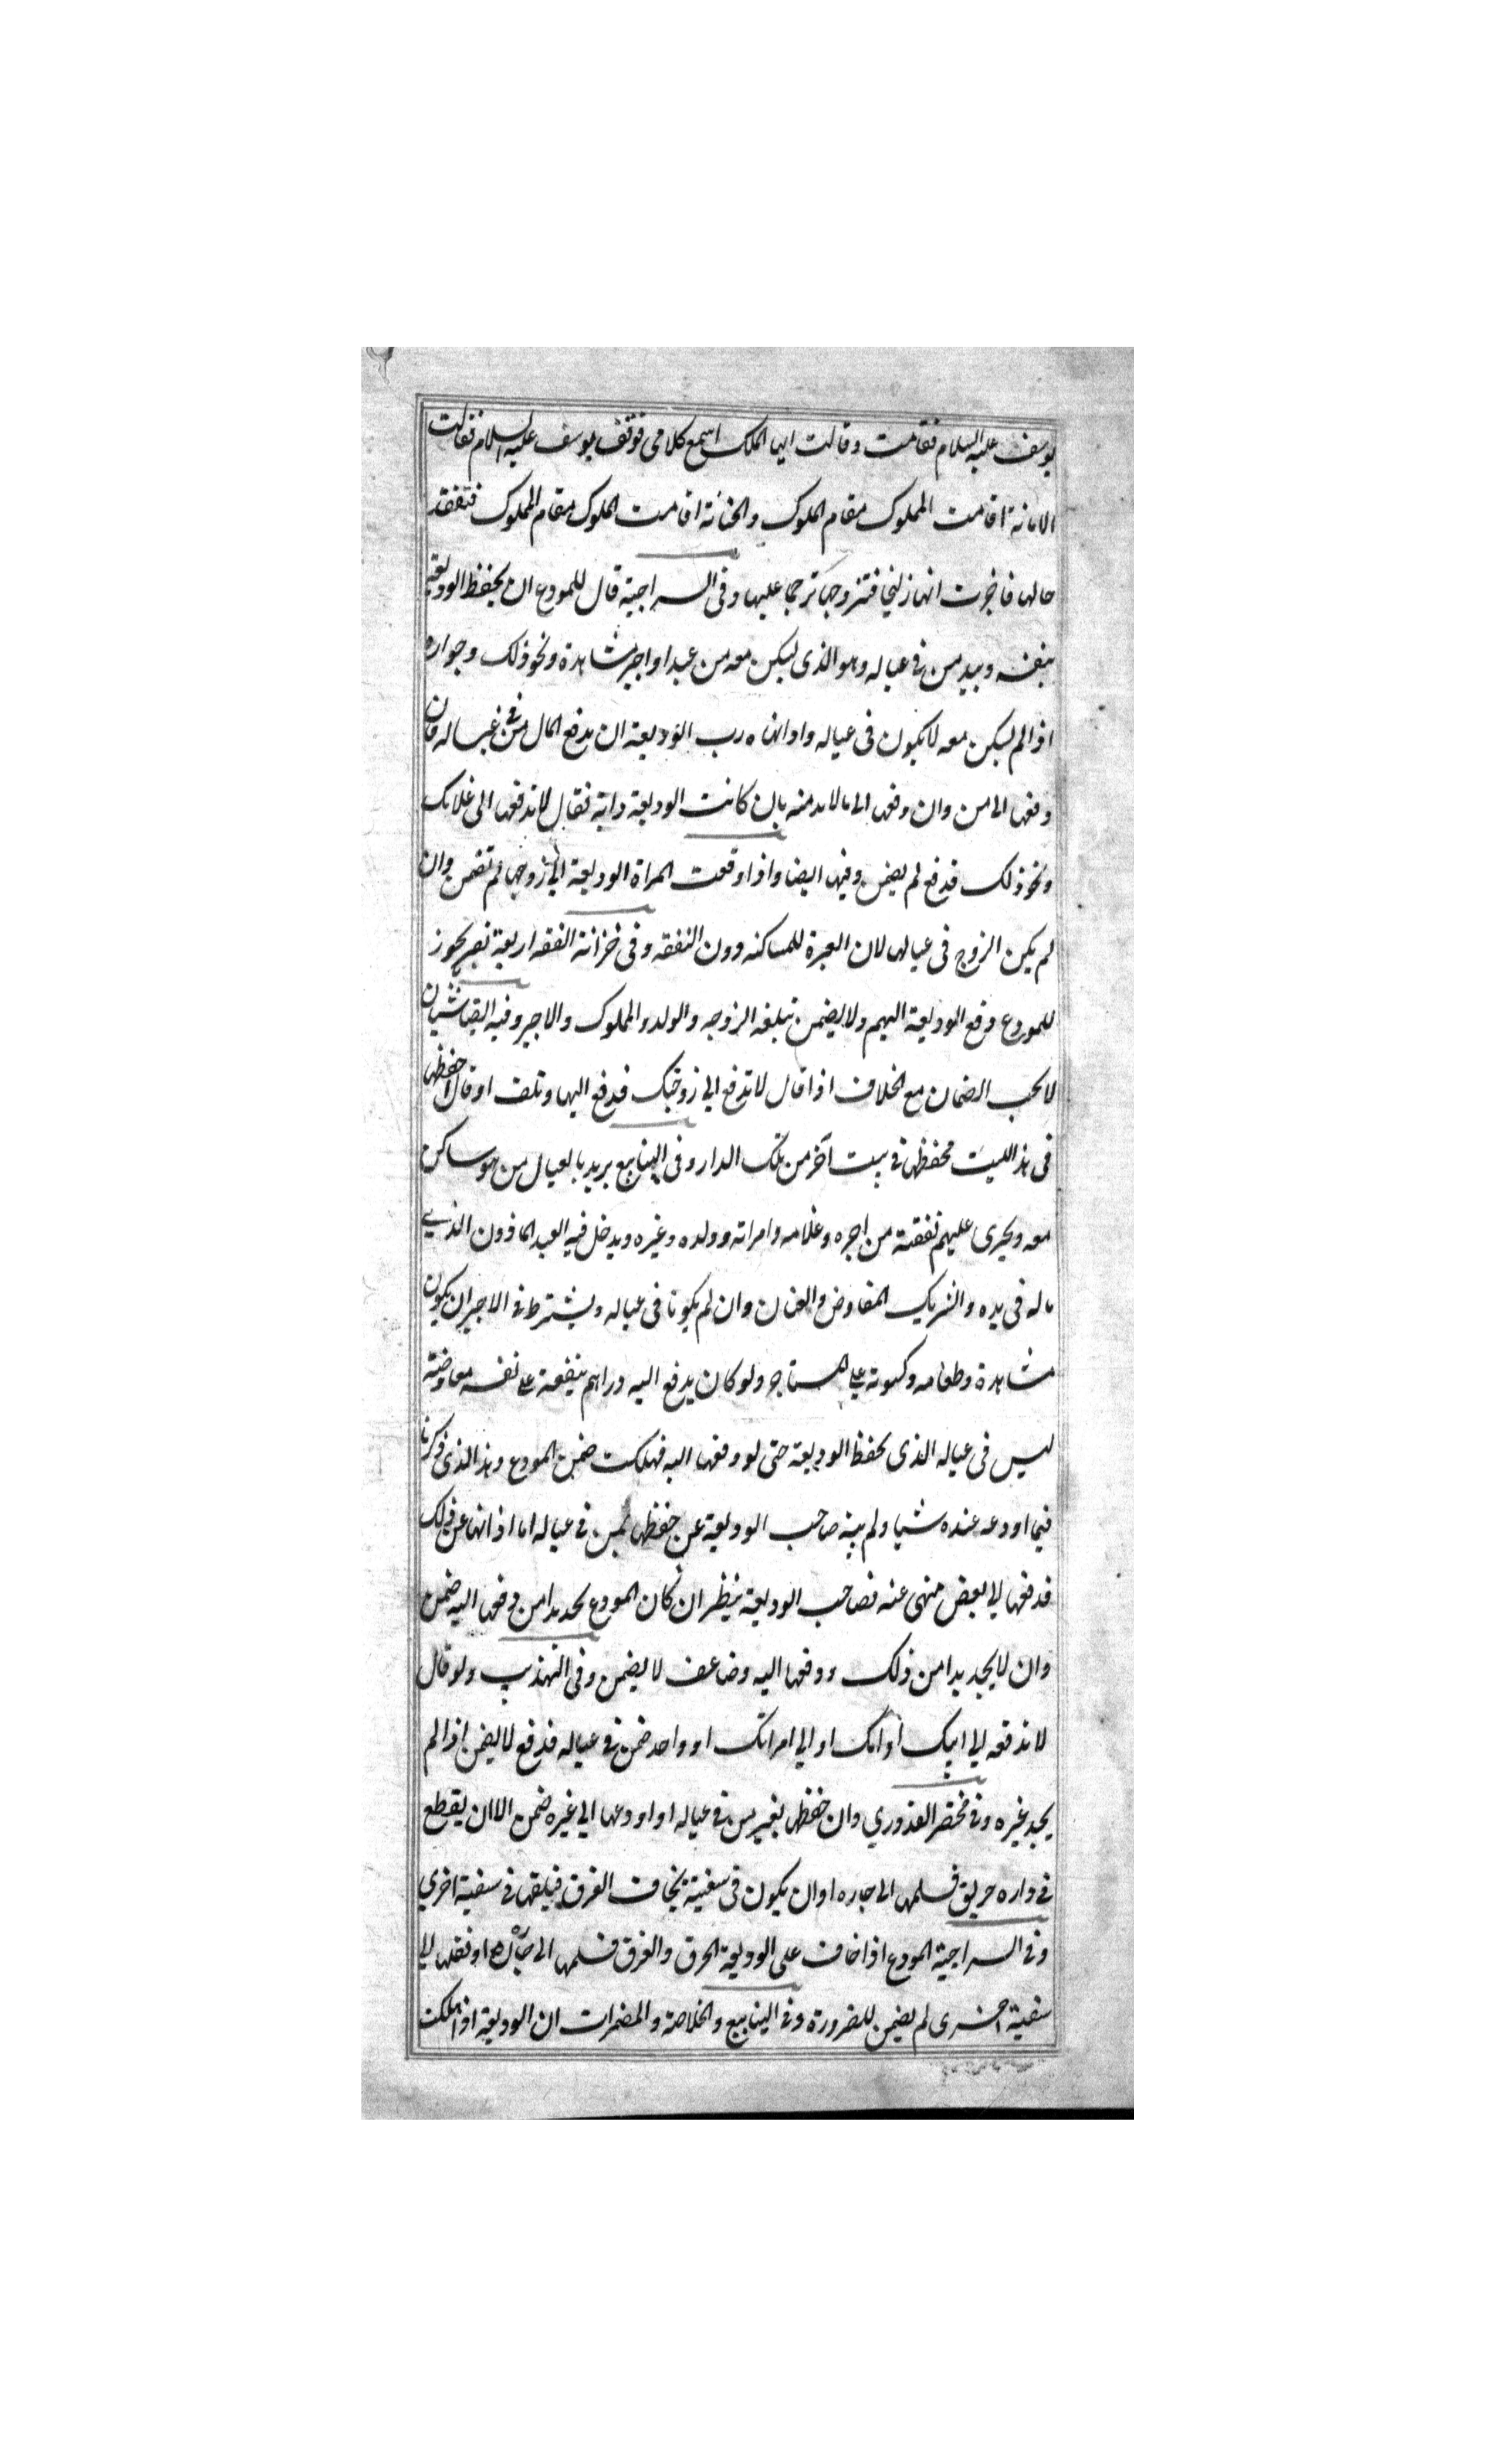 يوسف عليه السلام فقامت وقالت ايها الملك اسمع كلامي فوقف يوسف عليه السلام فقالت
الامانة اقامت المملوك مقام الملوك والخيانة اقامت الملوك مقام المملوك فتفقد
حالها فاخبرت انها زليخا فتزوجها ترحما عليها وفى السراجية قال للمودع ان يحفظ الوديعة
بنفسه وبيد من في عياله وهو الذى يسكن معه من عبد او اجير مشاهرة ونحو ذلك وجواره
اذا لم يسكن معه لا يكون فى عياله واذا نهاه رب الوديعة ان يدفع المال من في عياله فان
دفعها الى من وان دفعها الى ما لابد منه بان كانت الوديعة دابة فقال لا تدفعها الى غلامك
ونحو ذلك فدفع لم يضمن وفيها ايضا واذا دفعت المراة الوديعة الى زوجها لم تضمن وان
لم يكن الزوج فى عيالها لان العبرة للمساكنه دون النفقه وفى خزانة الفقه اربعة نفر يجوز
للمودع دفع الوديعة اليهم ولا يضمن بتلفه الزوجه والولد والمملوك والاجير وفيه ايضا شيئان
لا يجب الضمان مع الخلاف اذا قال لا تدفع الى زوجتك فدفع اليها وتلف او قال احفظها
فى هذا البيت فحفظها في بيت آخر من تلك الدار وفى الينابيع يريد بالعيال من هو ساكن
معه ويجرى عليهم نفقته من اجره وغلامه وامراته وولده وغيره ويدخل فيه العبد الماذون الذي
ماله فى يده والشريك المفاوض والعنان وان لم يكونا فى عياله ويشترط في الاجير ان يكون
مشاهرة وطعامه وكسوته على المستاجر ولو كان يدفع اليه دراهم ينفقة على نفسه معاوضة
ليس فى عياله الذى يحفظ الوديعة حتى لو دفعها اليه فهلكت ضمن المودع وهذا الذى ذكرنا
فيما اودعه عنده شيا ولم ينه صاحب الوديعة عن حفظها بمن في عياله اما اذا نها عن ذلك
فدفعها الى بعض منهى عنه فصاحب الوديعة ينظر ان كان المودع يجد بدا من دفعها اليه ضمن
وان لا يجد بدا من ذلك ودفعها اليه وضاعف لا يضمن وفى التهذيب ولو قال
لا تدفعه الى ابيك او امك او الى امراتك او واحد ضمن في عياله فدفع لا يضمن اذا لم
يجد غيره وفي مختصر القدوري وان حفظها بغير من في عياله او اودعها الى غيره ضمن الا ان يقطع
في داره حريق فسلمها الى جاره او ان يكون فى سفينة يخاف الغرق فيلقها في سفينة اخرى
وفي السراجية المودع اذا خاف على الوديعة الحرق والغرق فسلمها الى جاره او نقلها الى
سفينة اخرى لم يضمن للضرورة وفي الينابيع والخلاصة والمضمرات ان الوديعة اذا هلكت